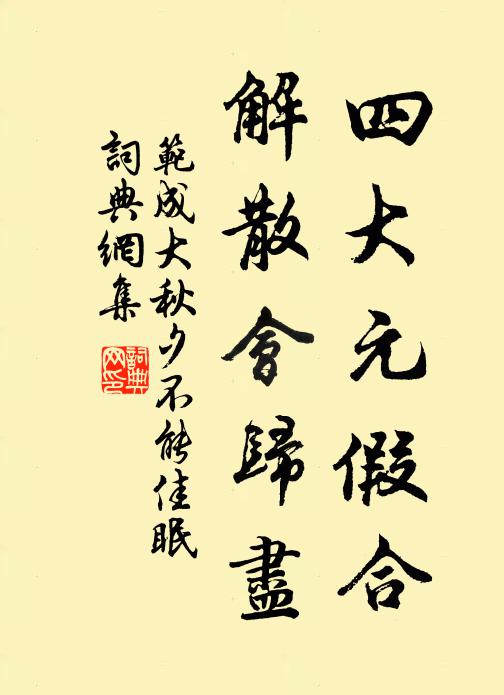 四大元假合
解散會歸盡
範成大秋夕不能佳眠
詞典網集
詞典
网印